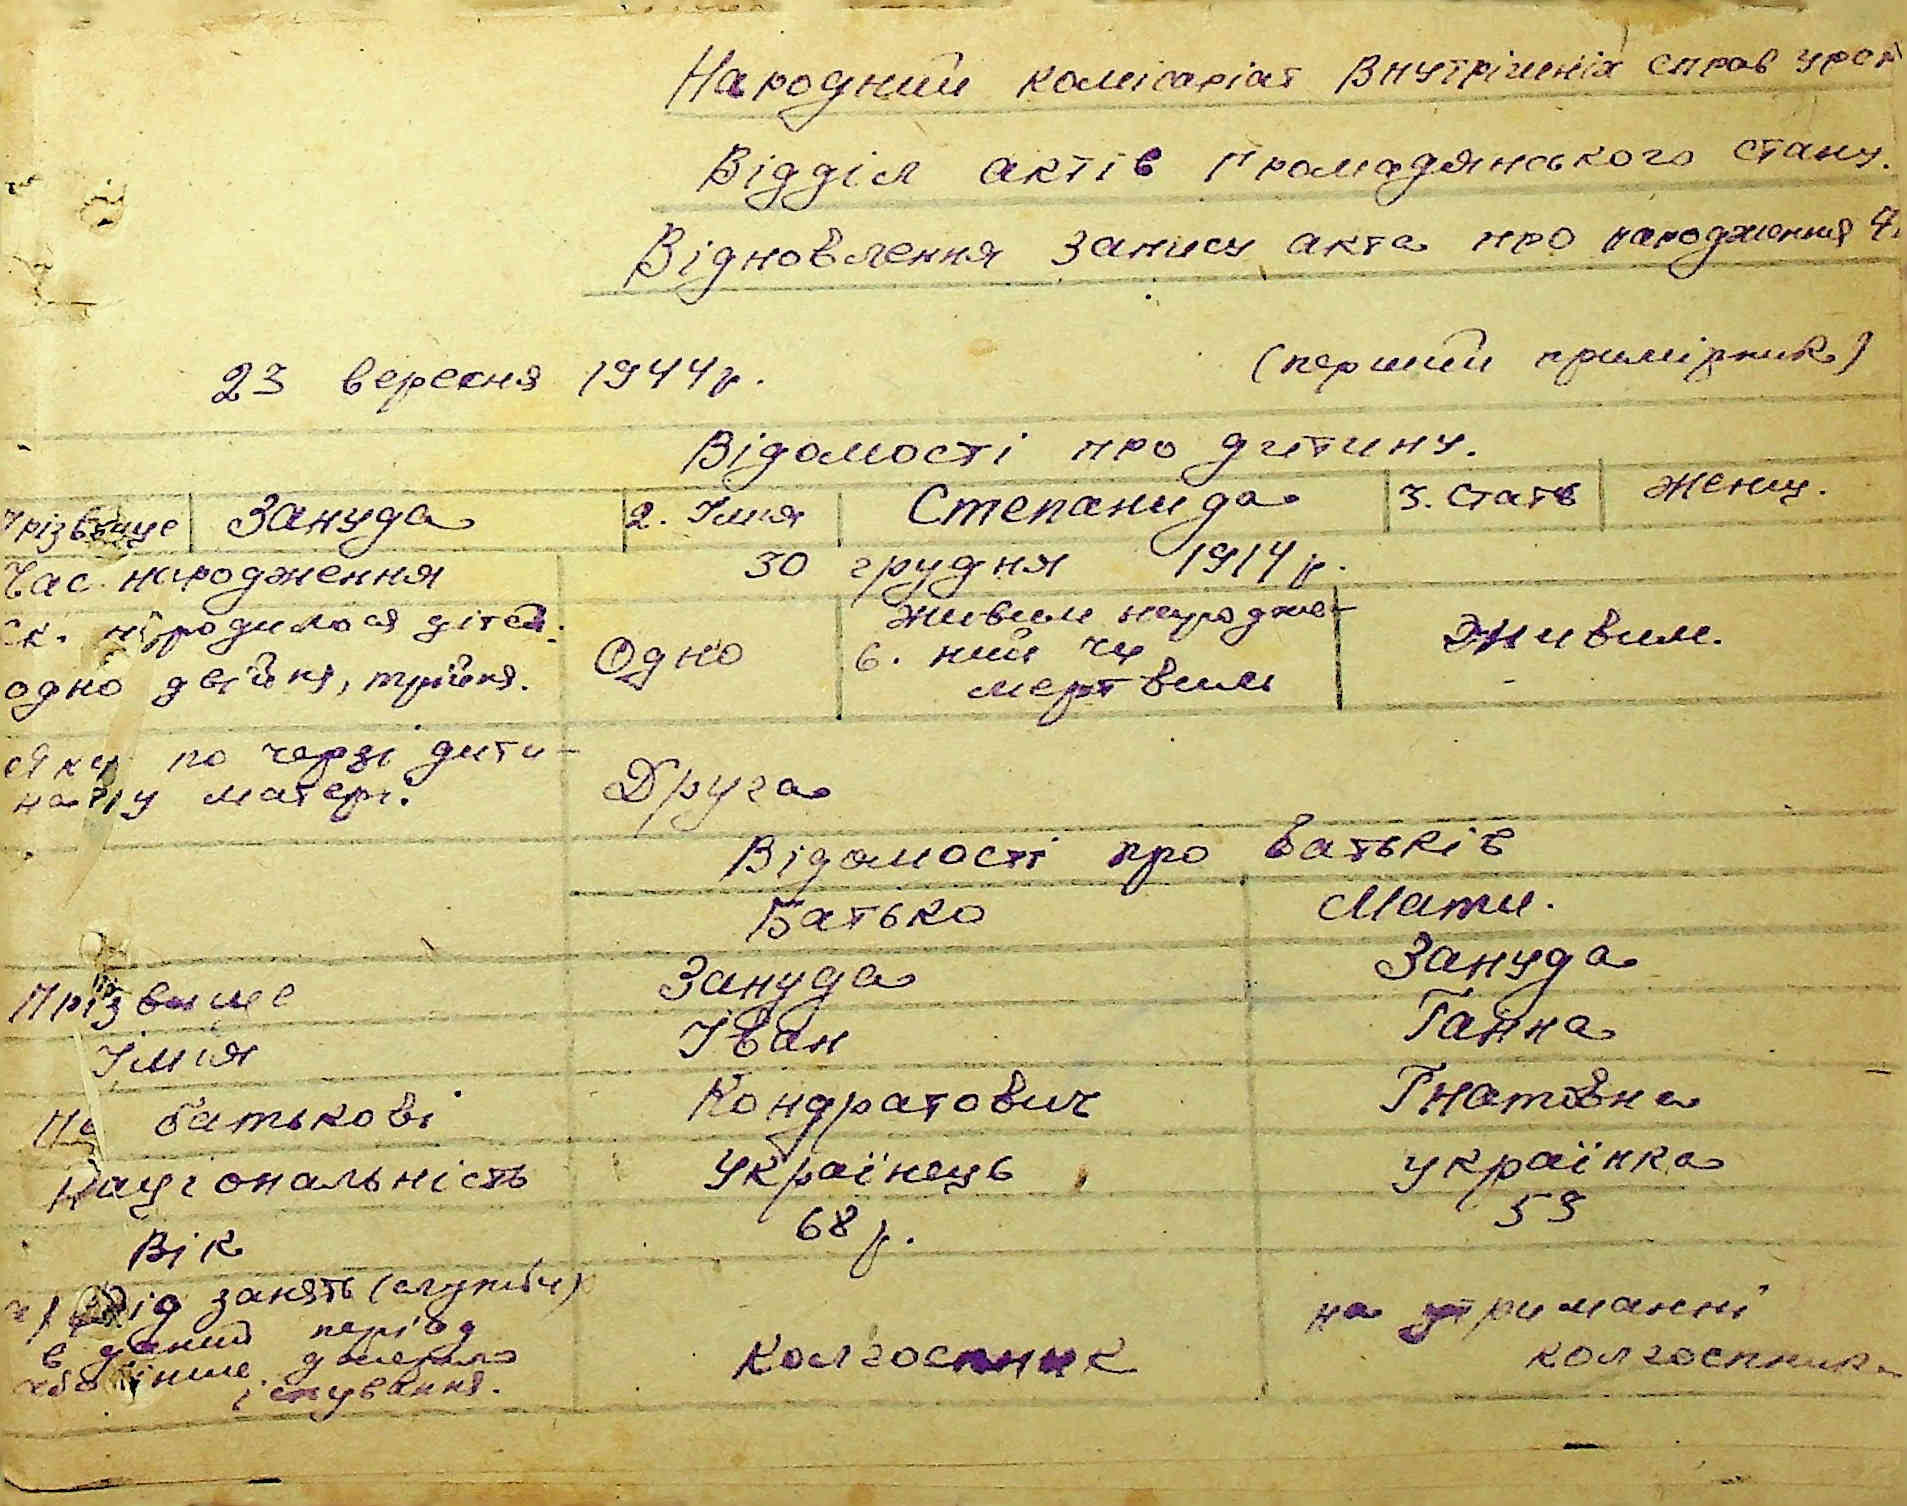 Народний комісаріат Внутрішніх справ УРСР
Відділ актів Громадянського стану.
Відновлення запису акта про народження
23 вересня 1944 р. (перший примірник)
Відомості про дитину.
Прізвище Зануда 2. Імія Степанида 3. Стать женщ.
Час народження 30 грудня 1914 р.
Ск. народилося дітей: одно двійня, трійня. Одно 6. живим народже-
ний чи
мертвим Живим.
Яка по черзі дити-
на у матері. Друга
Відомості про батьків
Батько Мати.
Прізвище Зануда Зануда
Імія Іван Ганна
По батькові Кондратович Гнатовна
Національність Українець українка
Вік 68 р. 59
рід занять (служби)
в даний період
або інше джерело
існування. Колгоспник на утриманні
колгоспника